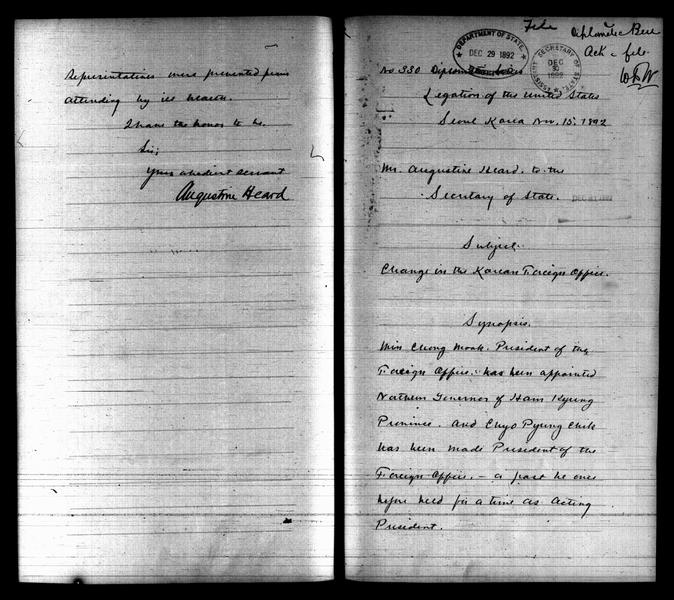 Representatives were prevented from
attending by ill health.
I have the honor to be,
Sir,
Your obedient servant
Augustine Heard
File
Diplomatic Bureau
Ack - file
DEPARTMENT OF STATE,
DEC 29 1892
ASSISTANT SECRETARY OF STATE,
DEC 30 1892
No 330 Diplomatic Series
Legation of the United States
Seoul Korea Nov. 15, 1892
Mr. Augustine Heard, to the
Secretary of State.
DEC 31 1892
Subject.
Change in the Korean Foreign Office.
Synopsis.
Min Chong Mook, President of the
Foreign Office, has been appointed
Northern Governor of Ham Kyung
Province, and Chyo Pyung Chik
has been made President of the
Foreign Office, - a post he once
before held for a time as Acting
President.